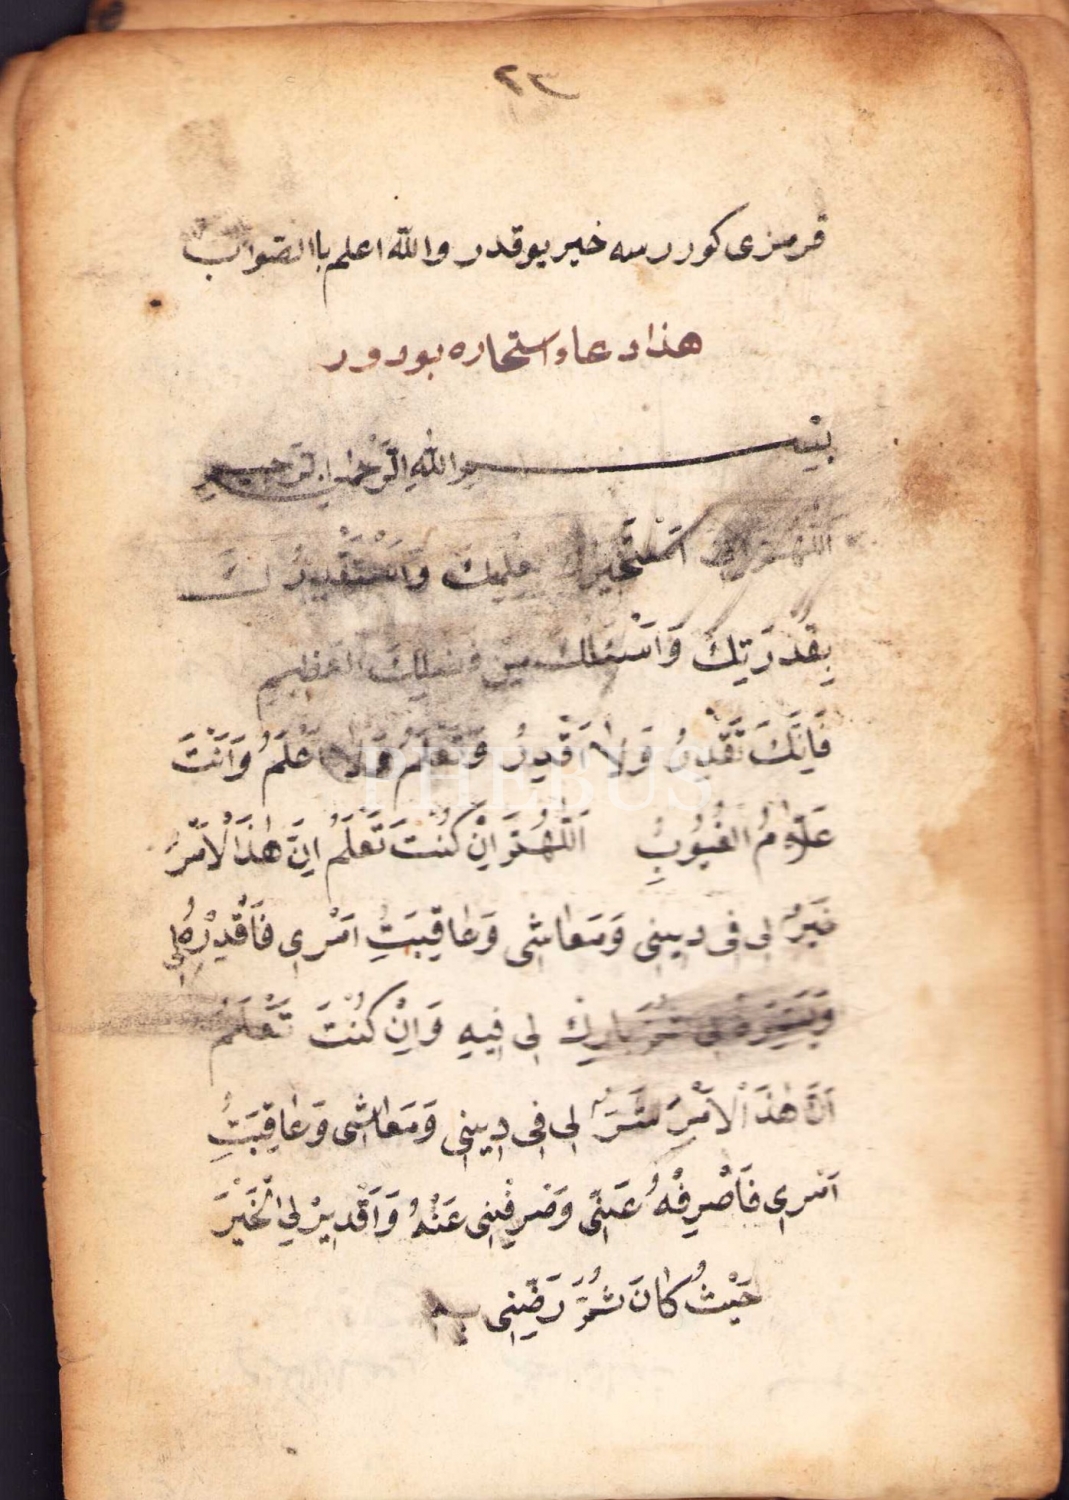 ٢٣
قرمزى كوررسه خير يوقدر والله اعلم باالصواب
هذا دعاء استخاره بودور
بِسْمِ اللهِ الرَّحْمٰنِ الرَّحِيمِ
اَللّٰهُمَّ اِنِّى اَسْتَخِيرُكَ بِعِلْمِكَ وَاَسْتَقْدِرُكَ
بِقُدْرَتِكَ وَاَسْئَلُكَ مِنْ فَضْلِكَ الْعَظِيمِ
فَاِنَّكَ تَقْدِرُ وَلَا اَقْدِرُ وَتَعْلَمُ وَلَا اَعْلَمُ وَاَنْتَ
عَلَّامُ الْغُيُوبِ اَللّٰهُمَّ اِنْ كُنْتَ تَعْلَمُ اِنَّ هٰذَا الْاَمْرَ
خَيْرٌ لِى فِى دِينِى وَمَعَاشِى وَعَاقِبَتِ اَمْرِى فَاَقْدِرْهُ لِى
وَيَسِّرْهُ لِى ثُمَّ بَارِكْ لِى فِيهِ وَاِنْ كُنْتَ تَعْلَمُ
اَنَّ هٰذَا الْاَمْرَ شَرٌّ لِى فِى دِينِى وَمَعَاشِى وَعَاقِبَتِ
اَمْرِى فَاصْرِفْهُ عَنِّى وَصْرِفْنِى عَنْهُ وَاَقْدِرْ لِىَ الْخَيْرَ
حَيْثُ كَانَ ثُمَّ رَضِّنِى
PHEBUS